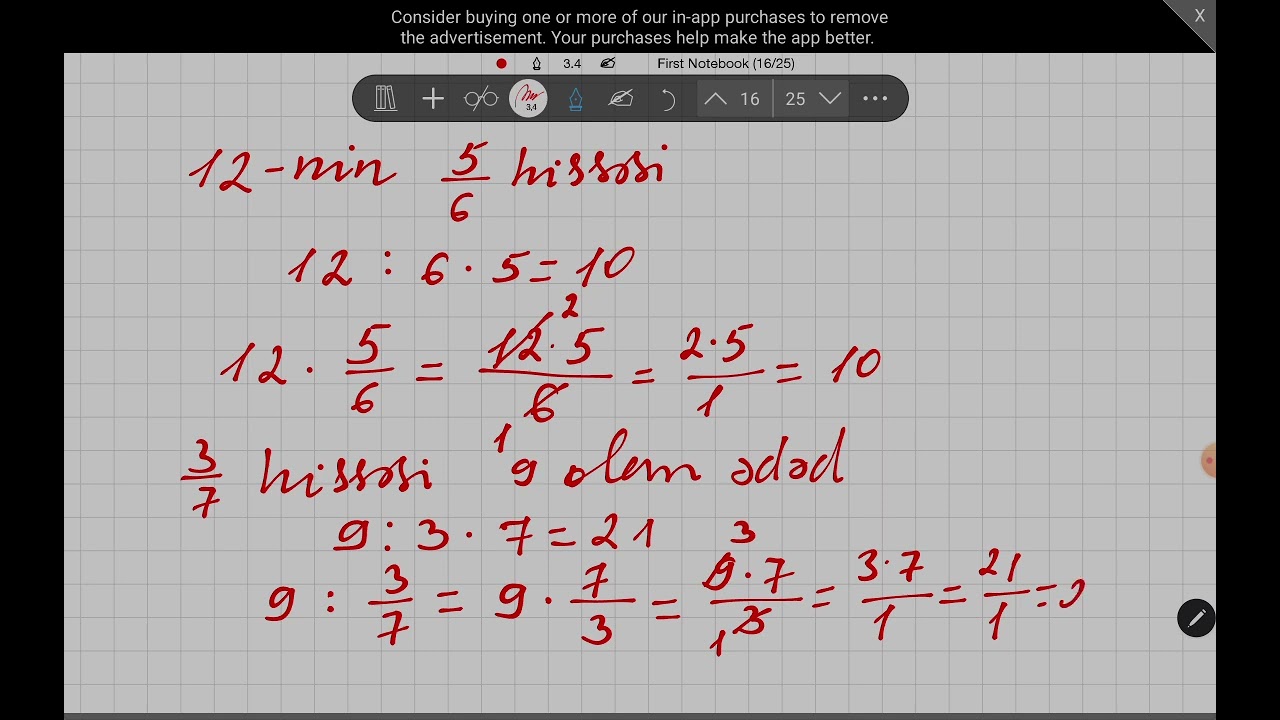 Consider buying one or more of our in-app purchases to remove
the advertisement. Your purchases help make the app better.
X
3.4 First Notebook (16/25)
3,4 16 25
12-nin 5/6 hissəsi
12 : 6 · 5 = 10
12 · 5/6 = 12 · 5/6 = 2·5/1 = 10
2
1
3/7 hissəsi 9 olan ədəd
9 : 3 · 7 = 21
9 : 3/7 = 9 · 7/3 = 9 · 7/3 = 3·7/1 = 21/1 =
3
1